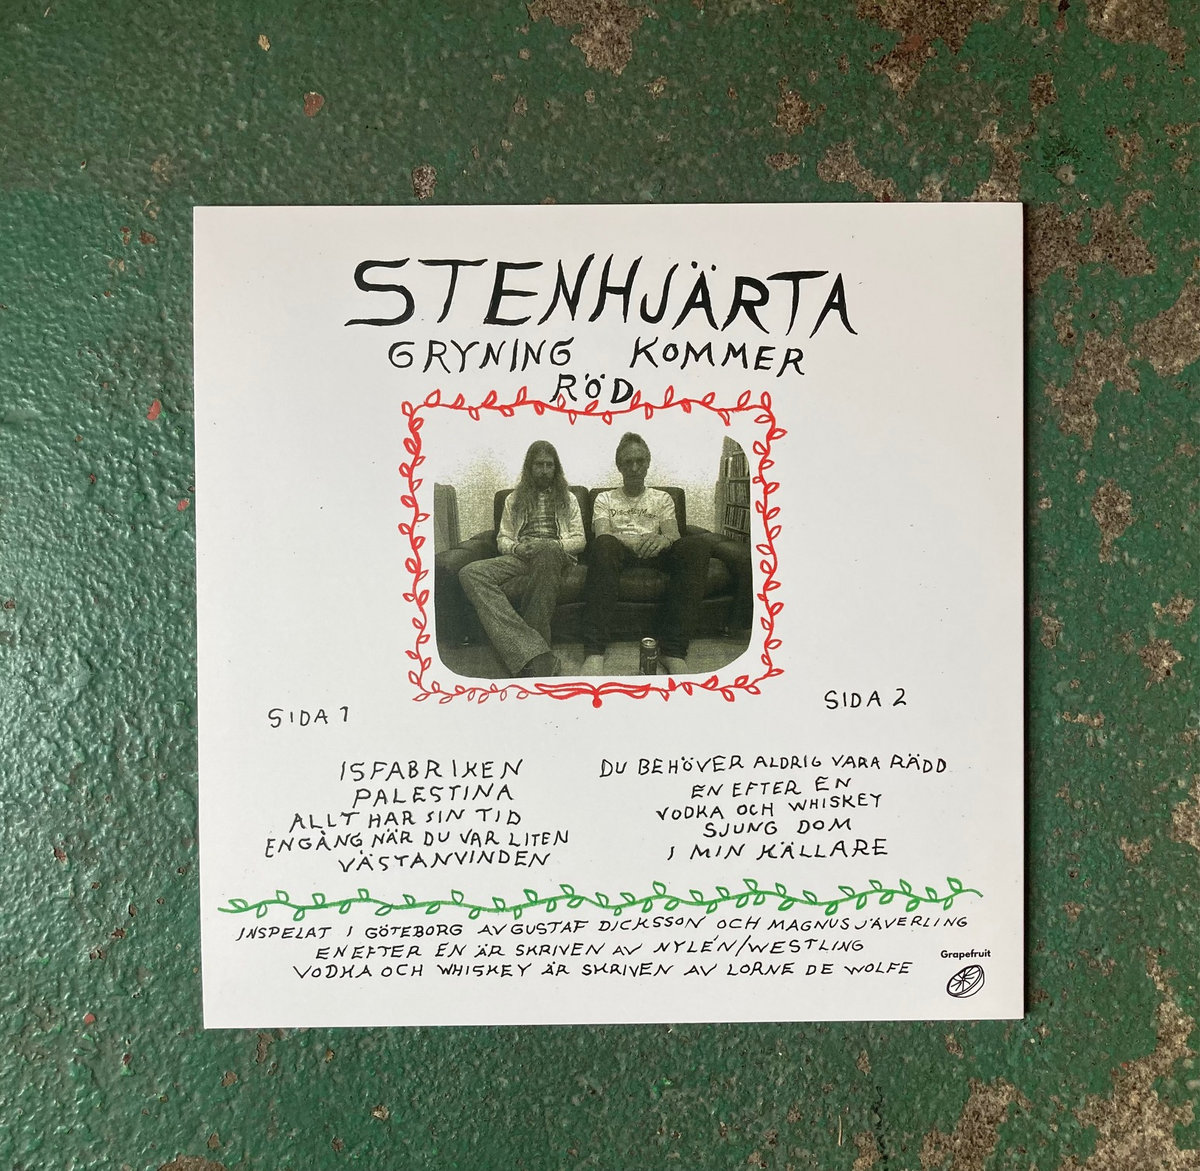 STENHJÄRTA
GRYNING KOMMER
RÖD
SIDA 1
ISFABRIKEN
PALESTINA
ALLT HAR SIN TID
ENGÅNG NÄR DU VAR LITEN
VÄSTANVINDEN
SIDA 2
DU BEHÖVER ALDRIG VARA RÄDD
EN EFTER EN
VODKA OCH WHISKEY
SJUNG DOM
I MIN KÄLLARE
INSPELAT I GÖTEBORG AV GUSTAF DICKSSON OCH MAGNUS JÄVERLING
EN EFTER EN ÄR SKRIVEN AV NYLÉN/WESTLING
VODKA OCH WHISKEY ÄR SKRIVEN AV LORNE DE WOLFE
Grapefruit